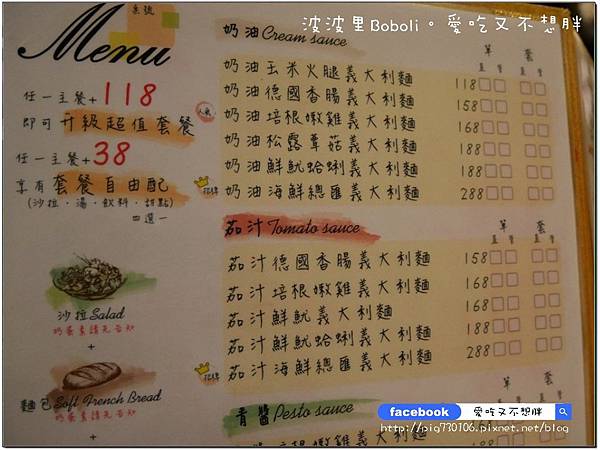 波波里Boboli。愛吃又不想胖
桌號
Menu
任一主餐+118
即可升級超值套餐
人氣
任一主餐+38
享有套餐自由配
(沙拉.湯.飲料.甜點)
四選一
招牌
沙拉Salad
奶蛋素請先告知
+
招牌
麵包Soft French Bread
奶蛋素請先告知
+
奶油Cream sauce
單 套
直 管 直 管
奶油玉米火腿義大利麵 118□□ □□
奶油德國香腸義大利麵 158□□ □□
奶油培根嫩雞義大利麵 168□□ □□
奶油松露蕈菇義大利麵 188□□ □□
奶油鮮魷蛤蜊義大利麵 188□□ □□
奶油海鮮總匯義大利麵 288□□ □□
茄汁Tomato sauce
單 套
直 管 直 管
茄汁德國香腸義大利麵 158□□ □□
茄汁培根嫩雞義大利麵 168□□ □□
茄汁鮮魷義大利麵 168□□ □□
茄汁鮮魷蛤蜊義大利麵 188□□ □□
茄汁海鮮總匯義大利麵 288□□ □□
青醬Pesto sauce
單 套
facebook 愛吃又不想胖
http://pig730106.pixnet.net/blog